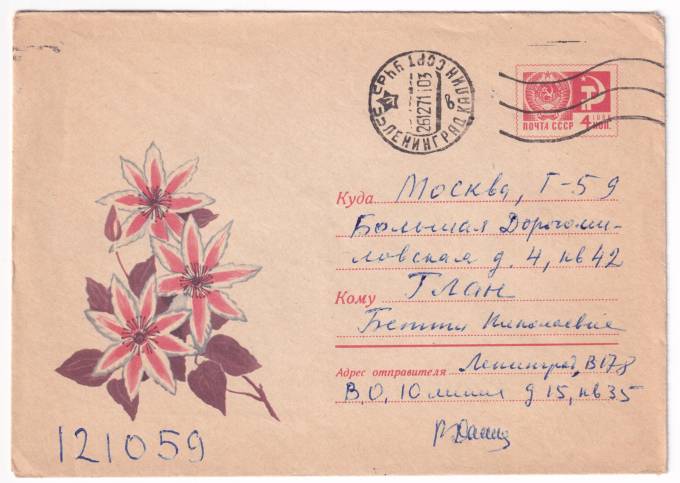 СССР ЛЕНИНГРАД КАЛИН СОРТ УЧ
26127103
в
ПОЧТА СССР
1966
4 КОП.
Куда Москва, Г-59
Большая Дорогоми-
ловская д. 4, кв 42
Кому Глан
Бетти Николаевне
Адрес отправителя Ленинград, В178
В,О, 10 линия д 15, кв 35
121059